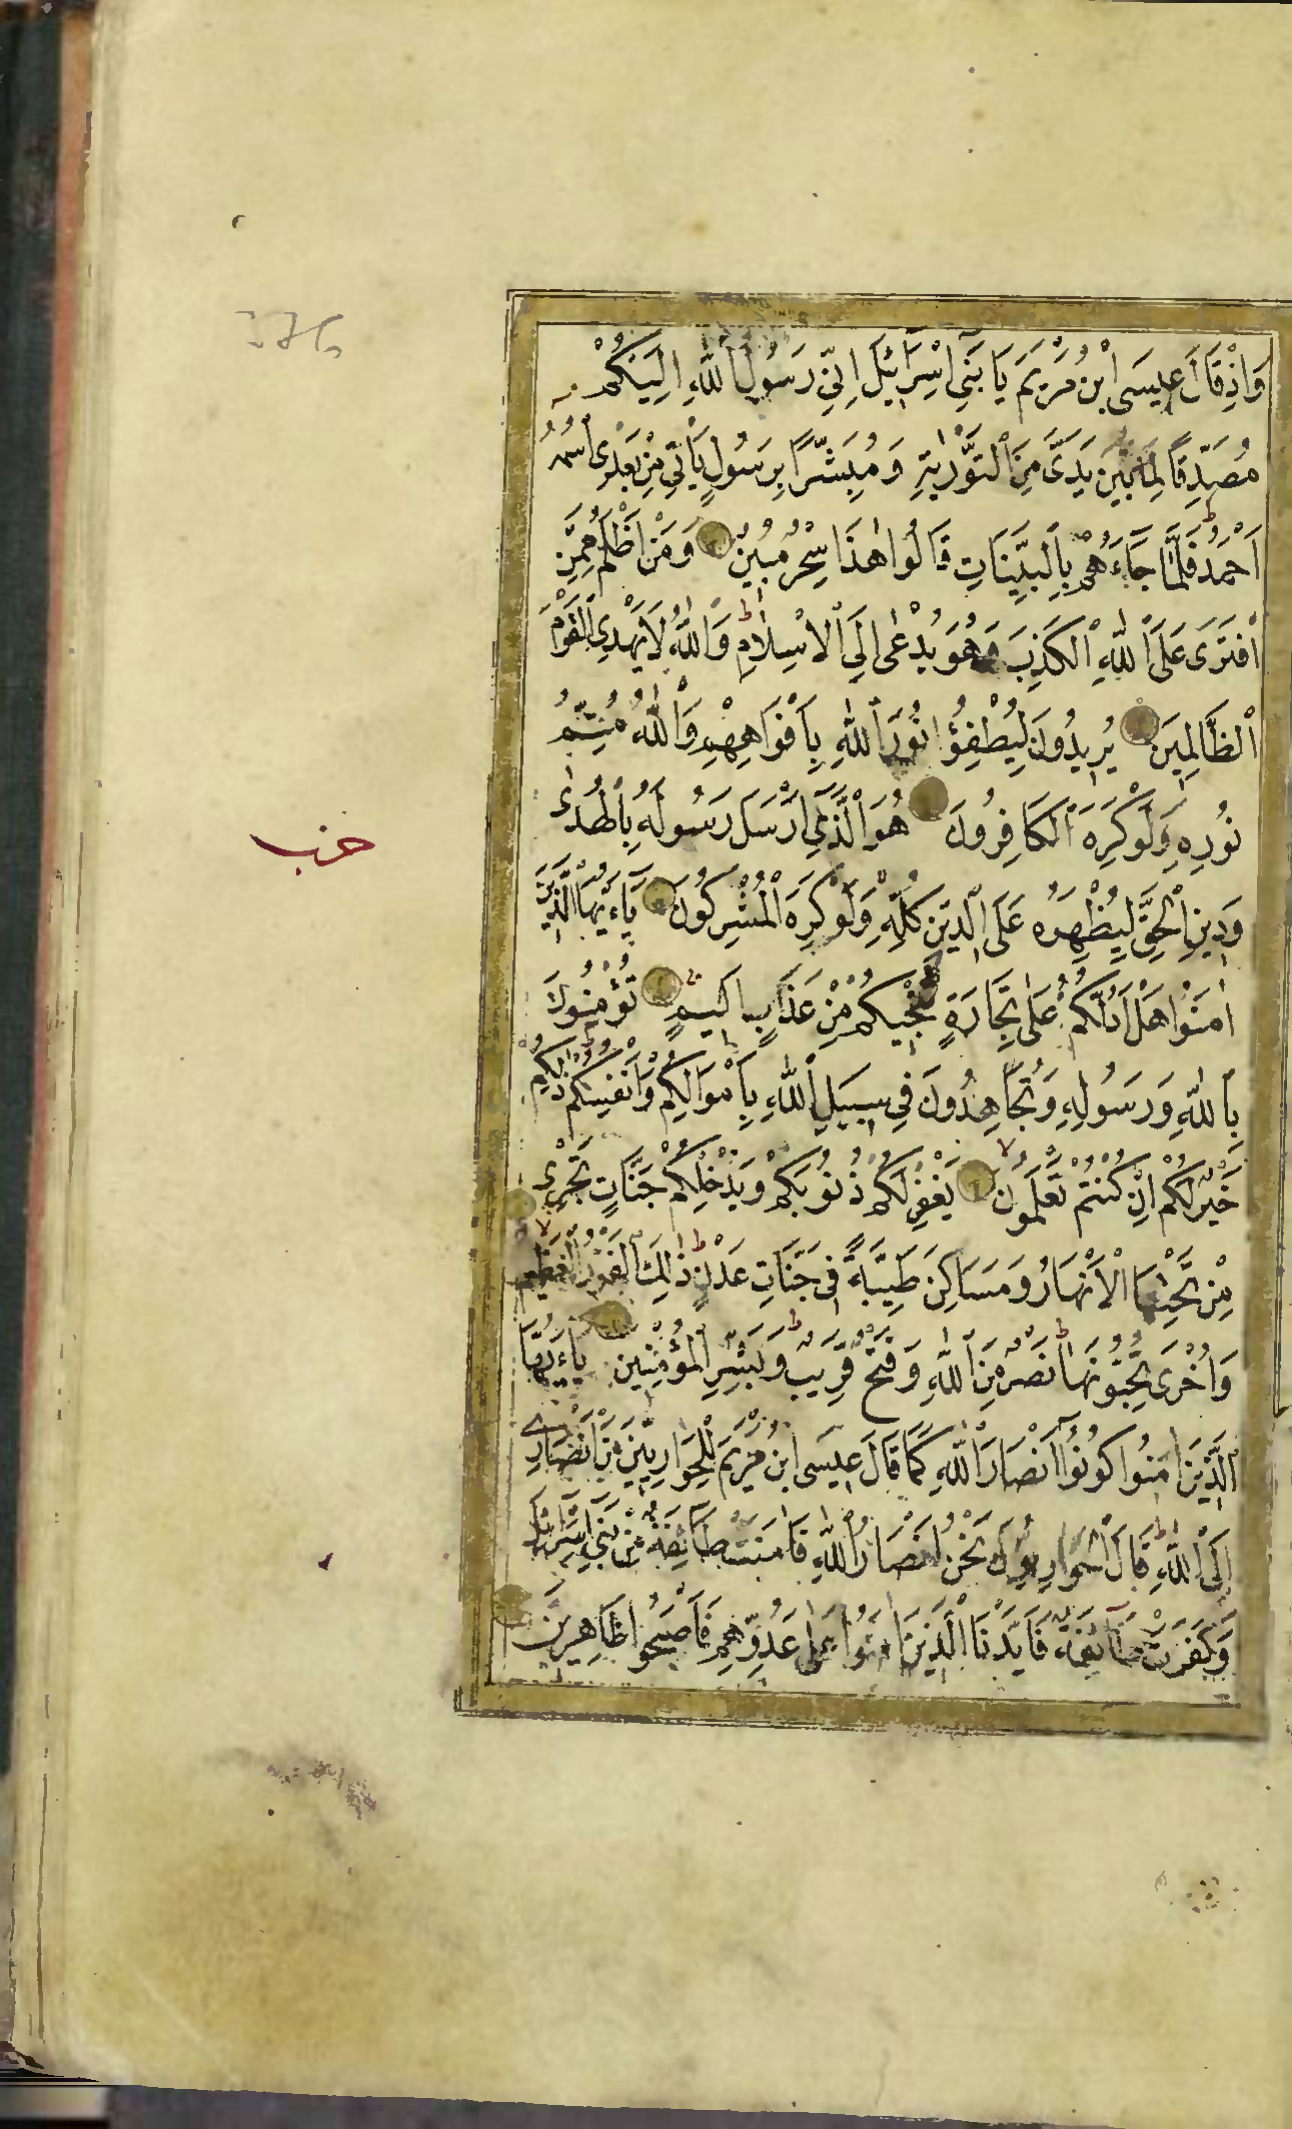 وَاِذْ قَالَ عِيسَى ابْنُ مَرْيَمَ يَا بَنِى اِسْرَائِلَ اِنِّى رَسُولُ اللّٰهِ اِلَيْكُمْ
مُصَدِّقًا لِمَا بَيْنَ يَدَىَّ مِنَ التَّوْرٰيةِ وَمُبَشِّرًا بِرَسُولٍ يَأْتِى مِنْ بَعْدِى اسْمُهُ
اَحْمَدُ فَلَمَّا جَاءَهُمْ بِالْبَيِّنَاتِ قَالُوا هٰذَا سِحْرٌ مُبِينٌ وَمَنْ اَظْلَمُ مِمَّنِ
افْتَرَى عَلَى اللّٰهِ الْكَذِبَ وَهُوَ يُدْعٰى اِلَى الْاِسْلَامِ وَاللّٰهُ لَا يَهْدِى الْقَوْمَ
الظَّالِمِينَ يُرِيدُونَ لِيُطْفِؤُا نُورَ اللّٰهِ بِاَفْوَاهِهِمْ وَاللّٰهُ مُتِمُّ
نُورِهِ وَلَوْ كَرِهَ الْكَافِرُونَ هُوَ الَّذِى اَرْسَلَ رَسُولَهُ بِالْهُدٰى
وَدِينِ الْحَقِّ لِيُظْهِرَهُ عَلَى الدِّينِ كُلِّهِ وَلَوْ كَرِهَ الْمُشْرِكُونَ يَاءَيُّهَا الَّذِينَ
اٰمَنُوا هَلْ اَدُلُّكُمْ عَلٰى تِجَارَةٍ تُنْجِيكُمْ مِنْ عَذَابٍ اَلِيمٍ تُؤْمِنُونَ
بِاللّٰهِ وَرَسُولِهِ وَتُجَاهِدُونَ فِى سَبِيلِ اللّٰهِ بِاَمْوَالِكُمْ وَاَنْفُسِكُمْ ذٰلِكُمْ
خَيْرٌ لَكُمْ اِنْ كُنْتُمْ تَعْلَمُونَ يَغْفِرْ لَكُمْ ذُنُوبَكُمْ وَيُدْخِلْكُمْ جَنَّاتٍ تَجْرِى
مِنْ تَحْتِهَا الْاَنْهَارُ وَمَسَاكِنَ طَيِّبَةً فِى جَنَّاتِ عَدْنٍ ذٰلِكَ الْفَوْزُ الْعَظِيمُ
وَاُخْرٰى تُحِبُّونَهَا نَصْرٌ مِنَ اللّٰهِ وَفَتْحٌ قَرِيبٌ وَبَشِّرِ الْمُؤْمِنِينَ يَاءَيُّهَا
الَّذِينَ اٰمَنُوا كُونُوا اَنْصَارَ اللّٰهِ كَمَا قَالَ عِيسَى ابْنُ مَرْيَمَ لِلْحَوَارِيِّينَ مَنْ اَنْصَارِى
اِلَى اللّٰهِ قَالَ الْحَوَارِيُّونَ نَحْنُ اَنْصَارُ اللّٰهِ فَاٰمَنَتْ طَائِفَةٌ مِنْ بَنِى اِسْرَائِلَ
وَكَفَرَتْ طَائِفَةٌ فَاَيَّدْنَا الَّذِينَ اٰمَنُوا عَلٰى عَدُوِّهِمْ فَاَصْبَحُوا ظَاهِرِينَ
حزب